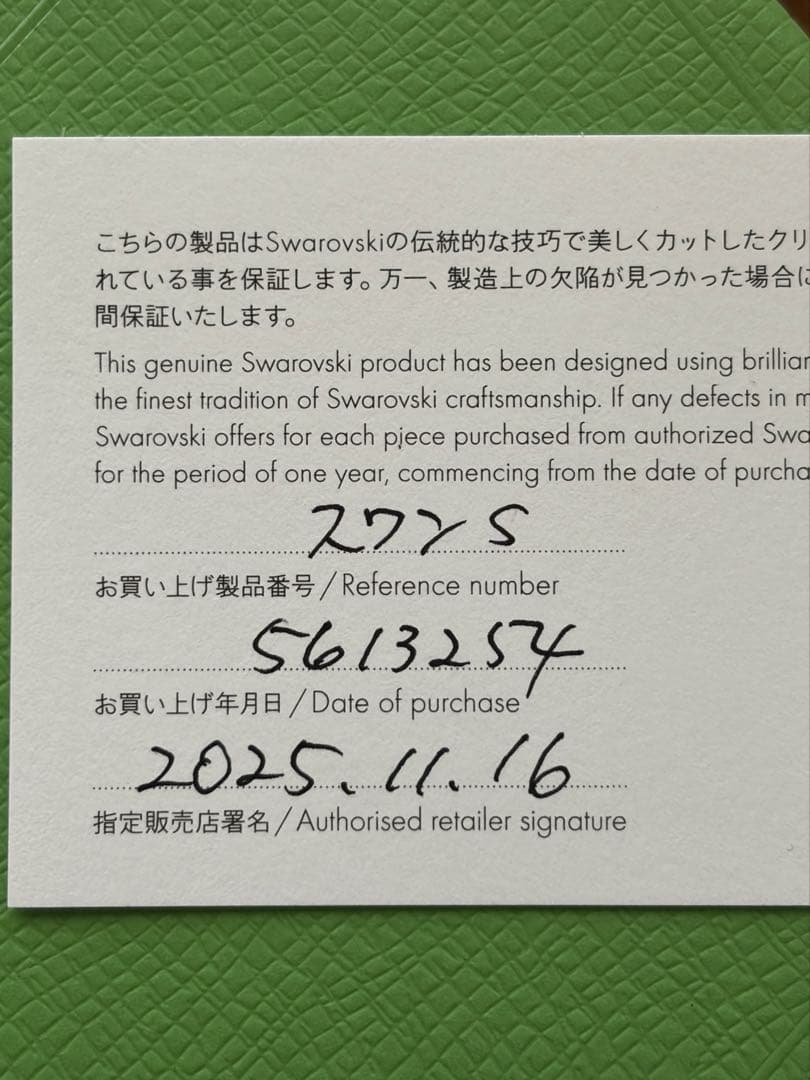 こちらの製品はSwarovskiの伝統的な技巧で美しくカットしたクリ
れている事を保証します。万一、製造上の欠陥が見つかった場合に
間保証いたします。
This genuine Swarovski product has been designed using brillian
the finest tradition of Swarovski craftsmanship. If any defects in m
Swarovski offers for each piece purchased from authorized Swa
for the period of one year, commencing from the date of purcha
スワン S
お買い上げ製品番号 / Reference number
5613254
お買い上げ年月日 / Date of purchase
2025.11.16
指定販売店署名 / Authorised retailer signature